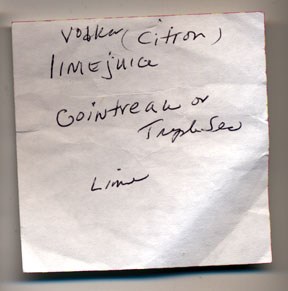 Vodka (Citron)
limejuice
Cointreau or
Triple Sec
Lime